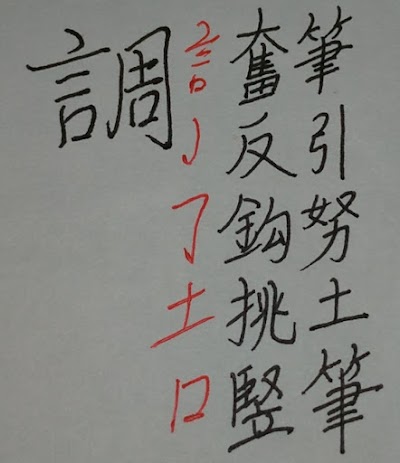 調
言奮筆
丿反引
𠃌鈎努
土挑土
口豎筆